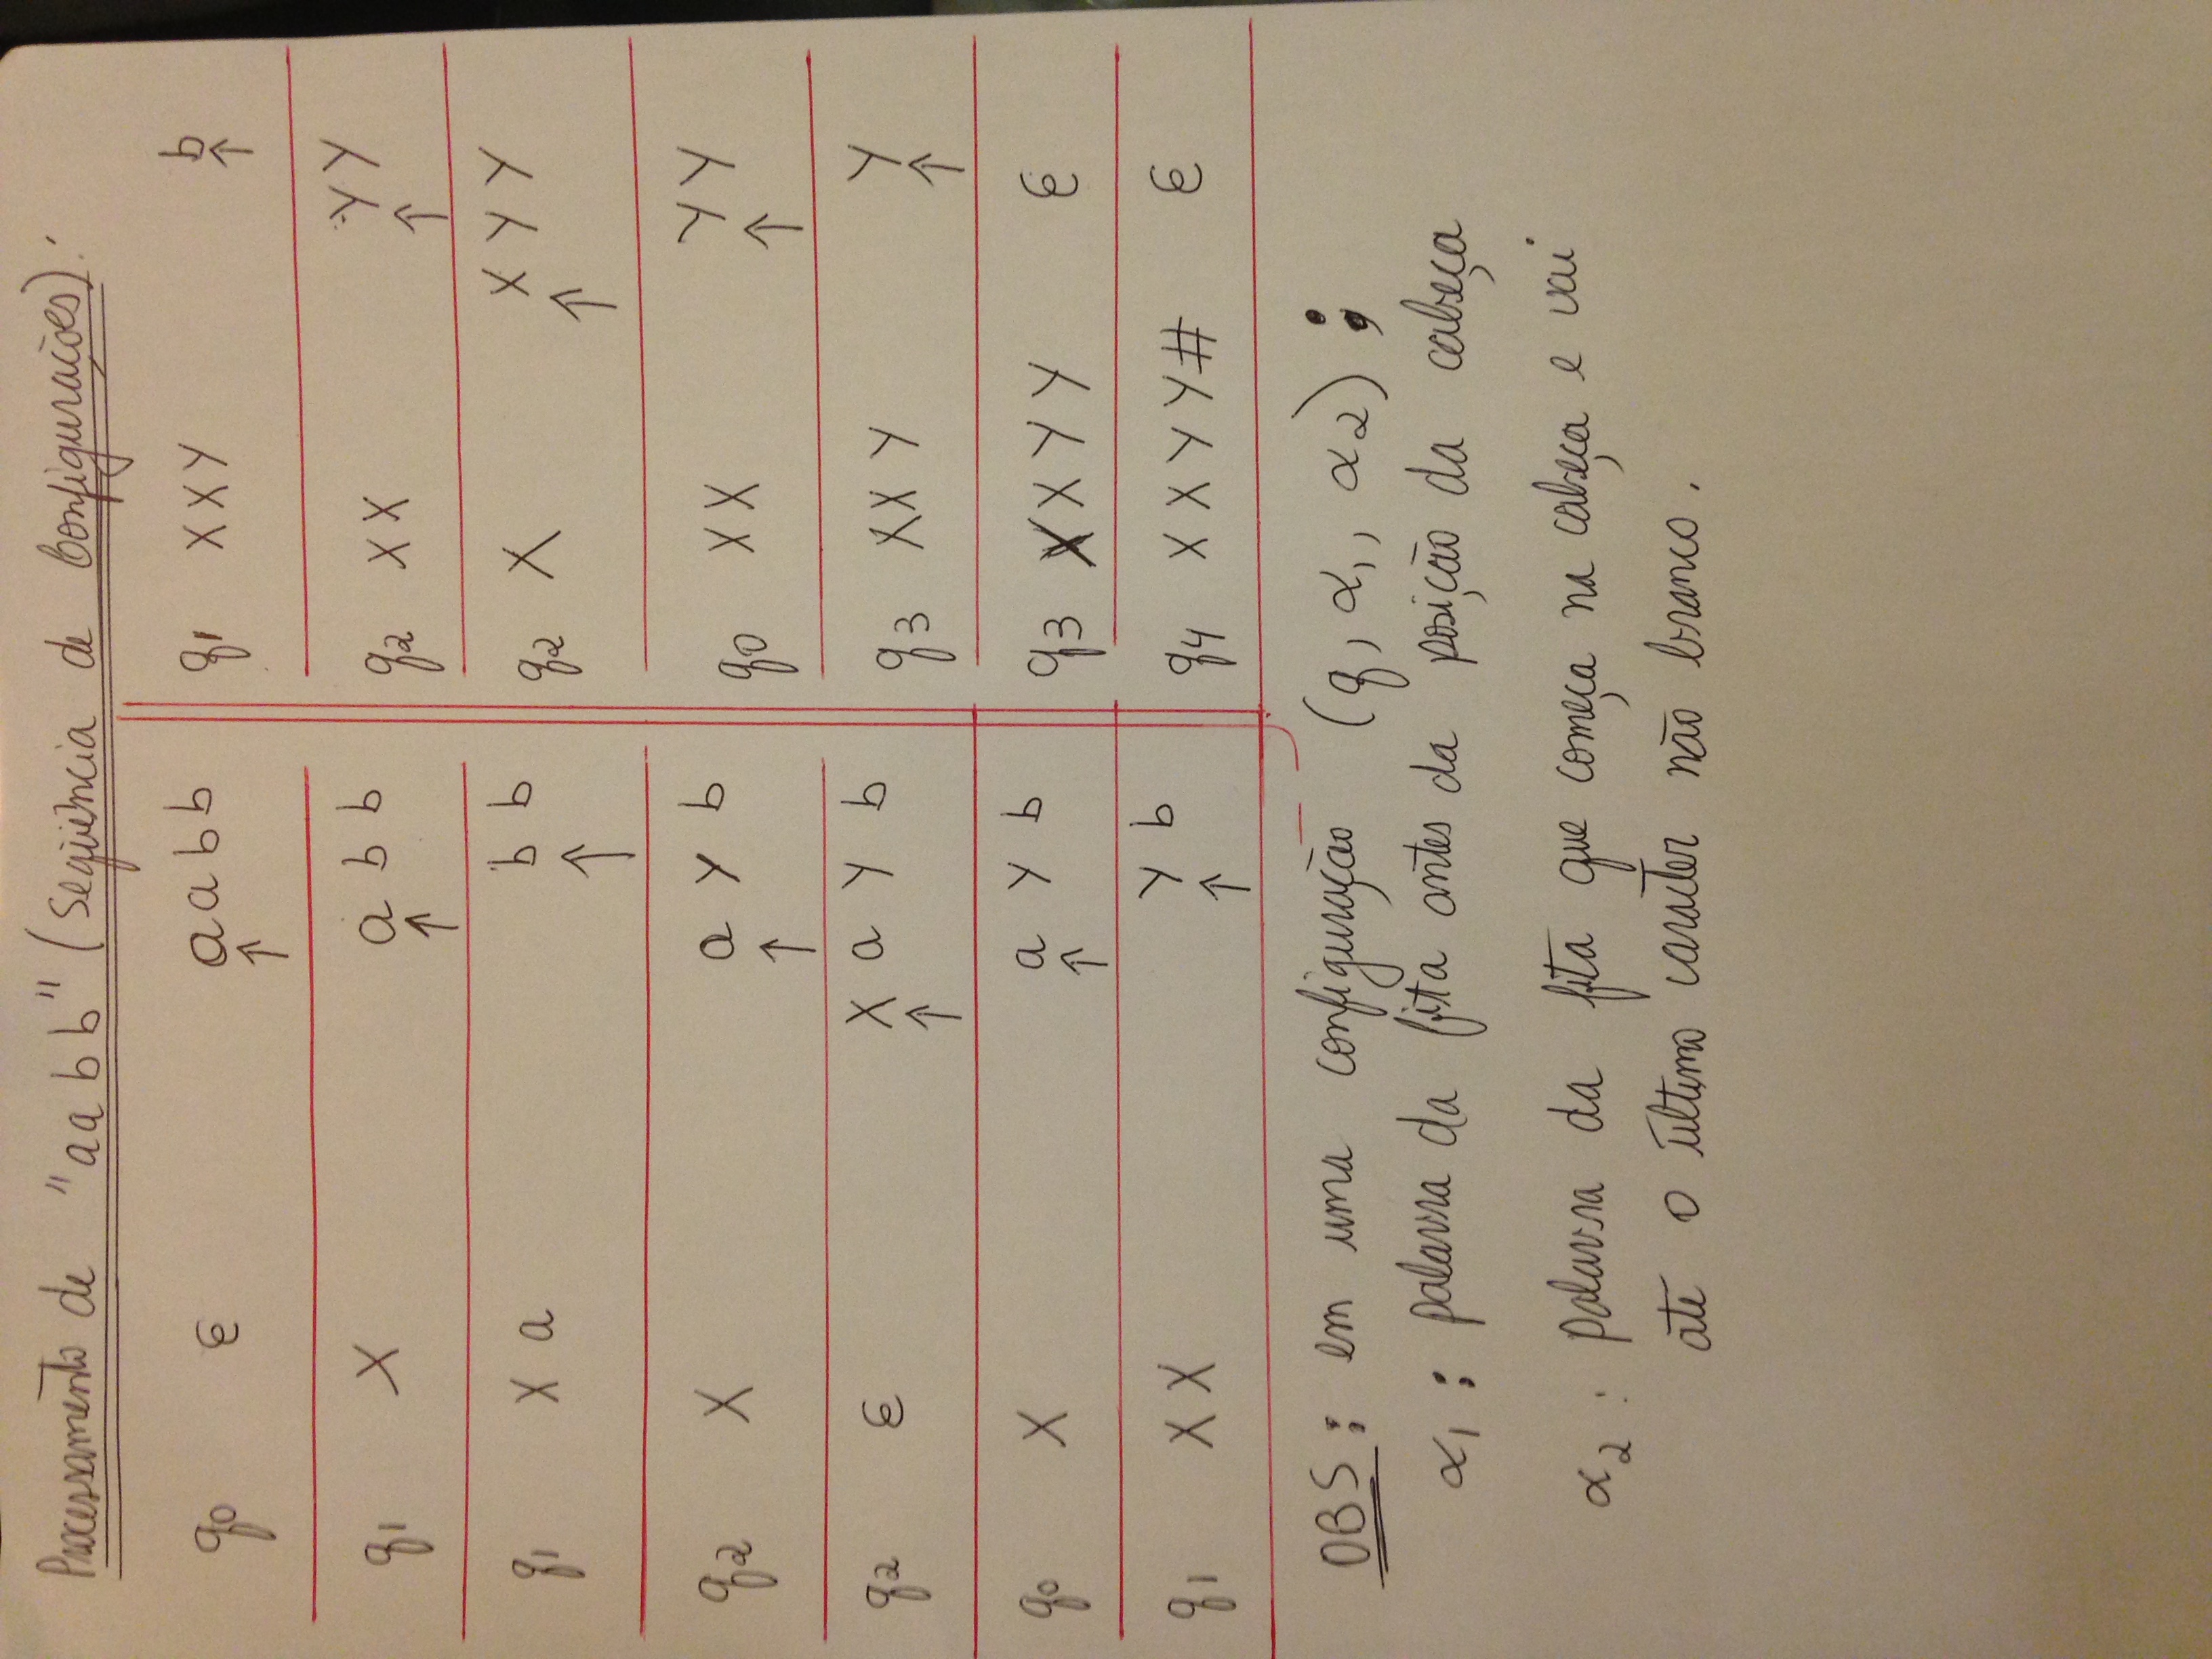 Processamento de "aabb" (Seqüência de Configurações):
q0 ε aabb
↑
q1 X abb
↑
q1 Xa bb
↑
q2 X aYb
↑
q2 ε XaYb
↑
q0 X aYb
↑
q1 XX Yb
↑
q1 XXY b
↑
q2 XX YY
↑
q2 X XYY
↑
q0 XX YY
↑
q3 XXY Y
↑
q3 XXYY ε
q4 XXYY# ε
OBS: em uma configuração (q, α1, α2);
α1: palavra da fita antes da posição da cabeça
α2: palavra da fita que começa na cabeça e vai
até o último caracter não branco.